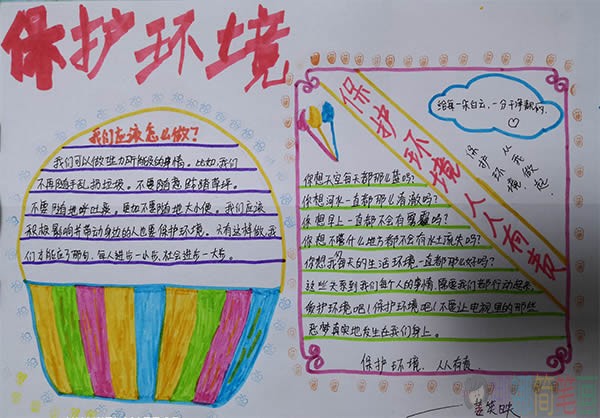 保护环境
我们应该怎么做?
我们可以做些力所能及的事情。比如,我们
不再随手乱扔垃圾。不要随意踩踏草坪。
不要随地呼吐痰。更加不要随地大小便。我们应该
积极影响并带动身边的人也要保护环境。只有这样做,我
们才能应了那句,每人进步一小步,社会进步一大步。
保护环境人人有责
给每一朵白云,一分干净
保护环境
从我做起
你想天空每天都那么蓝吗?
你想河水一直都那么清澈吗?
你想早上一直都不会有雾霾吗?
你想不管什么地方都不会有水土流失吗?
你想我每天的生活环境一直都那么好吗?
这些关系到我们每个人的事情,需要我们都行动起来,
爱护环境吧!保护环境吧!不要让电视里的那些
恶梦真实地发生在我们身上。
保护环境,人人有责